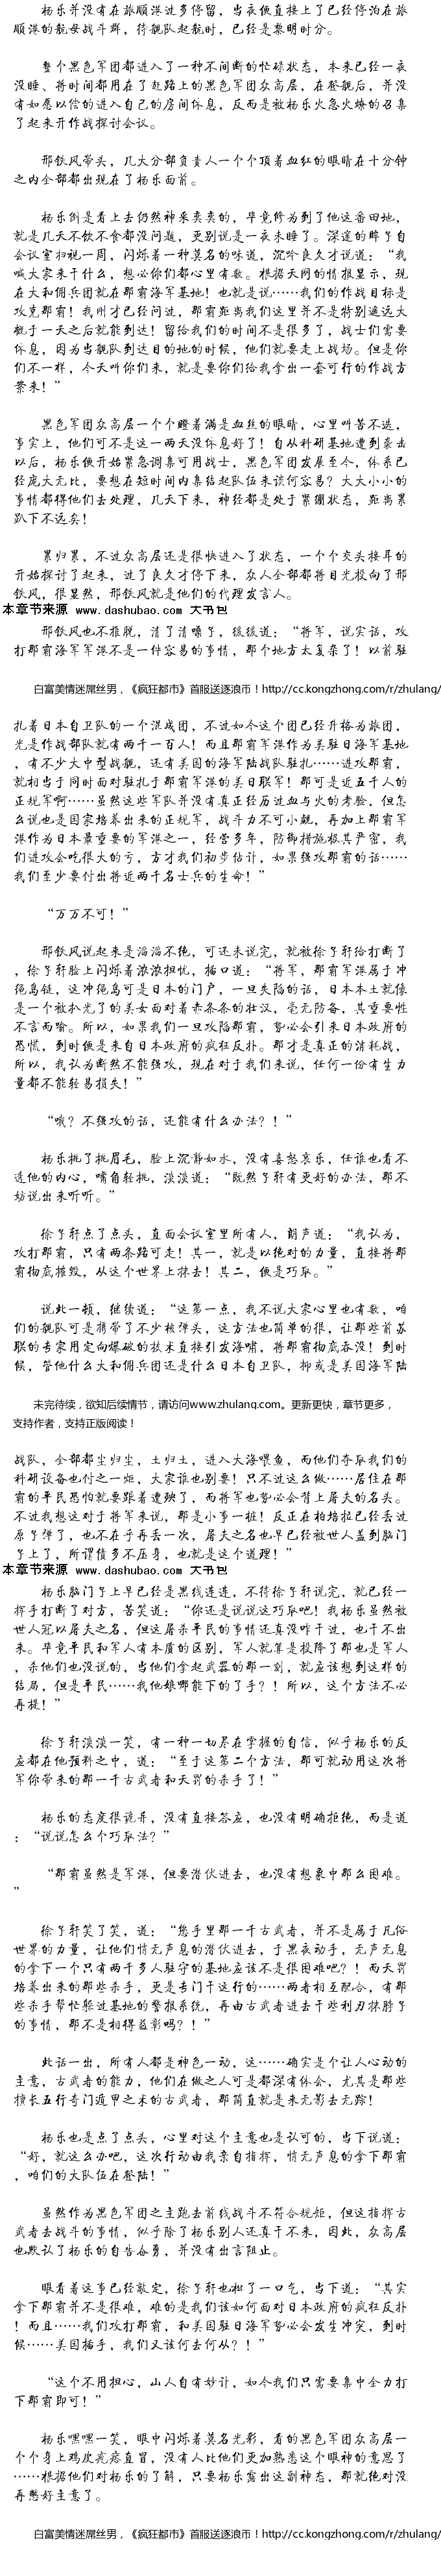 杨乐并没有在旅顺港过多停留，当夜便直接上了已经停泊在旅
顺港的航母战斗群，待舰队起航时，已经是黎明时分。
整个黑色军团都进入了一种不间断的忙碌状态，本来已经一夜
没睡、将时间都用在了赶路上的黑色军团众高层，在登舰后，并没
有如愿以偿的进入自己的房间休息，反而是被杨乐火急火燎的召集
了起来开作战探讨会议。
邢铁风带头，几大分部负责人一个个顶着血红的眼睛在十分钟
之内全部都出现在了杨乐面前。
杨乐倒是看上去仍然神采奕奕的，毕竟修为到了他这番田地，
就是几天不饮不食都没问题，更别说是一夜未睡了。深邃的眸子自
会议室扫视一周，闪烁着一种莫名的味道，沉吟良久才说道：“我
喊大家来干什么，想必你们都心里有数。根据天网的情报显示，现
在大和佣兵团就在那霸海军基地！也就是说……我们的作战目标是
攻克那霸！我刚才已经问过，那霸距离我们这里并不是特别遥远大
概于一天之后就能到达！留给我们的时间不是很多了，战士们需要
休息，因为当舰队到达目的地的时候，他们就要走上战场。但是你
们不一样，今天叫你们来，就是要你们给我拿出一套可行的作战方
案来！”
黑色军团众高层一个个瞪着满是血丝的眼睛，心里叫苦不迭，
事实上，他们可不是这一两天没休息好了！自从科研基地遭到袭击
以后，杨乐便开始紧急调集可用战士，黑色军团发展至今，体系已
经庞大无比，要想在短时间内集结起队伍来谈何容易？大大小小的
事情都得他们去处理，几天下来，神经都是处于紧绷状态，距离累
趴下不远矣！
累归累，不过众高层还是很快进入了状态，一个个交头接耳的
开始探讨了起来，过了良久才停下来，众人全部都将目光投向了邢
铁风，很显然，邢铁风就是他们的代理发言人。
本章节来源 www.dashubao.com 大书包
邢铁风也不推脱，清了清嗓子，缓缓道：“将军，说实话，攻
打那霸海军军港不是一件容易的事情，那个地方太复杂了！以前驻
白富美情迷屌丝男，《疯狂都市》首服送逐浪币！http://cc.kongzhong.com/r/zhulang/
扎着日本自卫队的一个混成团，不过如今这个团已经升格为旅团，
光是作战部队就有两千一百人！而且那霸军港作为美驻日海军基地
，有不少大中型战舰，还有美国的海军陆战队驻扎……进攻那霸，
就相当于同时面对驻扎于那霸军港的美日联军！那可是近五千人的
正规军啊……虽然这些军队并没有真正经历过血与火的考验，但怎
么说也是国家培养出来的正规军，战斗力不可小觑，再加上那霸军
港作为日本最重要的军港之一，经营多年，防御措施极其严密，我
们进攻会吃很大的亏，方才我们初步估计，如果强攻那霸的话……
我们至少要付出将近两千名士兵的生命！”
“万万不可！”
邢铁风说起来是滔滔不绝，可还未说完，就被徐子轩给打断了
，徐子轩脸上闪烁着浓浓担忧，插口道：“将军，那霸军港属于冲
绳岛链，这冲绳岛可是日本的门户，一旦失陷的话，日本本土就像
是一个被扒光了的美女面对着赤条条的壮汉，毫无防备，其重要性
不言而喻。所以，如果我们一旦攻陷那霸，势必会引来日本政府的
恐慌，到时便是来自日本政府的疯狂反扑。那才是真正的消耗战，
所以，我认为断然不能强攻，现在对于我们来说，任何一份有生力
量都不能轻易损失！”
“哦？不强攻的话，还能有什么办法？！”
杨乐挑了挑眉毛，脸上沉静如水，没有喜怒哀乐，任谁也看不
透他的内心，嘴角轻挑，淡淡道：“既然子轩有更好的办法，那不
妨说出来听听。”
徐子轩点了点头，直面会议室里所有人，朗声道：“我认为，
攻打那霸，只有两条路可走！其一，就是以绝对的力量，直接将那
霸彻底摧毁，从这个世界上抹去！其二，便是巧取。”
说此一顿，继续道：“这第一点，我不说大家心里也有数，咱
们的舰队可是携带了不少核弹头，这方法也简单的很，让那些前苏
联的专家用定向爆破的技术直接引发海啸，将那霸彻底吞没！到时
候，管他什么大和佣兵团还是什么日本自卫队，抑或是美国海军陆
未完待续，欲知后续情节，请访问www.zhulang.com。更新更快，章节更多，
支持作者，支持正版阅读！
战队，全部都尘归尘，土归土，进入大海喂鱼，而他们夺取我们的
科研设备也付之一炬，大家谁也别要！只不过这么做……居住在那
霸的平民恐怕就要跟着遭殃了，而将军也势必会背上屠夫的名头。
不过我想这对于将军来说，那是小事一桩！反正在柏培拉已经丢过
原子弹了，也不在乎再丢一次，屠夫之名也早已经被世人盖到脑门
子上了，所谓债多不压身，也就是这个道理！”
本章节来源 www.dashubao.com 大书包
杨乐脑门子上早已经是黑线连连，不待徐子轩说完，就已经一
挥手打断了对方，苦笑道：“你还是说说这巧取吧！我杨乐虽然被
世人冠以屠夫之名，但这屠杀平民的事情还真没咋干过，也干不出
来。毕竟平民和军人有本质的区别，军人就算是投降了那也是军人
，杀他们也没说的，当他们拿起武器的那一刻，就应该想到这样的
结局，但是平民……我他娘哪能下的了手？！所以，这个方法不必
再提！”
徐子轩淡淡一笑，有一种一切尽在掌握的自信，似乎杨乐的反
应都在他预料之中，道：“至于这第二个方法，那可就动用这次将
军你带来的那一千古武者和天罚的杀手了！”
杨乐的态度很诡异，没有直接答应，也没有明确拒绝，而是道
：“说说怎么个巧取法？”
“那霸虽然是军港，但要潜伏进去，也没有想象中那么困难。
”
徐子轩笑了笑，道：“您手里那一千古武者，并不是属于凡俗
世界的力量，让他们悄无声息的潜伏进去，于黑夜动手，无声无息
的拿下一个只有两千多人驻守的基地应该不是很困难吧？！而天罚
培养出来的那些杀手，更是专门干这行的……两者相互配合，有那
些杀手帮忙躲过基地的警报系统，再由古武者进去干些利刃抹脖子
的事情，那不是相得益彰吗？！”
此话一出，所有人都是神色一动，这……确实是个让人心动的
主意，古武者的能力，他们在傲之人可是都深有体会，尤其是那些
擅长五行奇门遁甲之术的古武者，那简直就是来无影去无踪！
杨乐也是点了点头，心里对这个主意也是认可的，当下说道：
“好，就这么办吧，这次行动由我亲自指挥，悄无声息的拿下那霸
，咱们的大队伍在登陆！”
虽然作为黑色军团之主跑去前线战斗不符合规矩，但这指挥古
武者去战斗的事情，似乎除了杨乐别人还真干不来，因此，众高层
也默认了杨乐的自告奋勇，并没有出言阻止。
眼看着这事已经敲定，徐子轩也松了一口气，当下道：“其实
拿下那霸并不是很难，难的是我们该如何面对日本政府的疯狂反扑
！而且……我们攻打那霸，和美国驻日海军势必会发生冲突，到时
候……美国插手，我们又该何去何从？！”
“这个不用担心，山人自有妙计，如今我们只需要集中全力打
下那霸即可！”
杨乐嘿嘿一笑，眼中闪烁着莫名光彩，看的黑色军团众高层一
个个身上鸡皮疙瘩直冒，没有人比他们更加熟悉这个眼神的意思了
……根据他们对杨乐的了解，只要杨乐露出这副神态，那就绝对没
再憋好主意了。
白富美情迷屌丝男，《疯狂都市》首服送逐浪币！http://cc.kongzhong.com/r/zhulang/